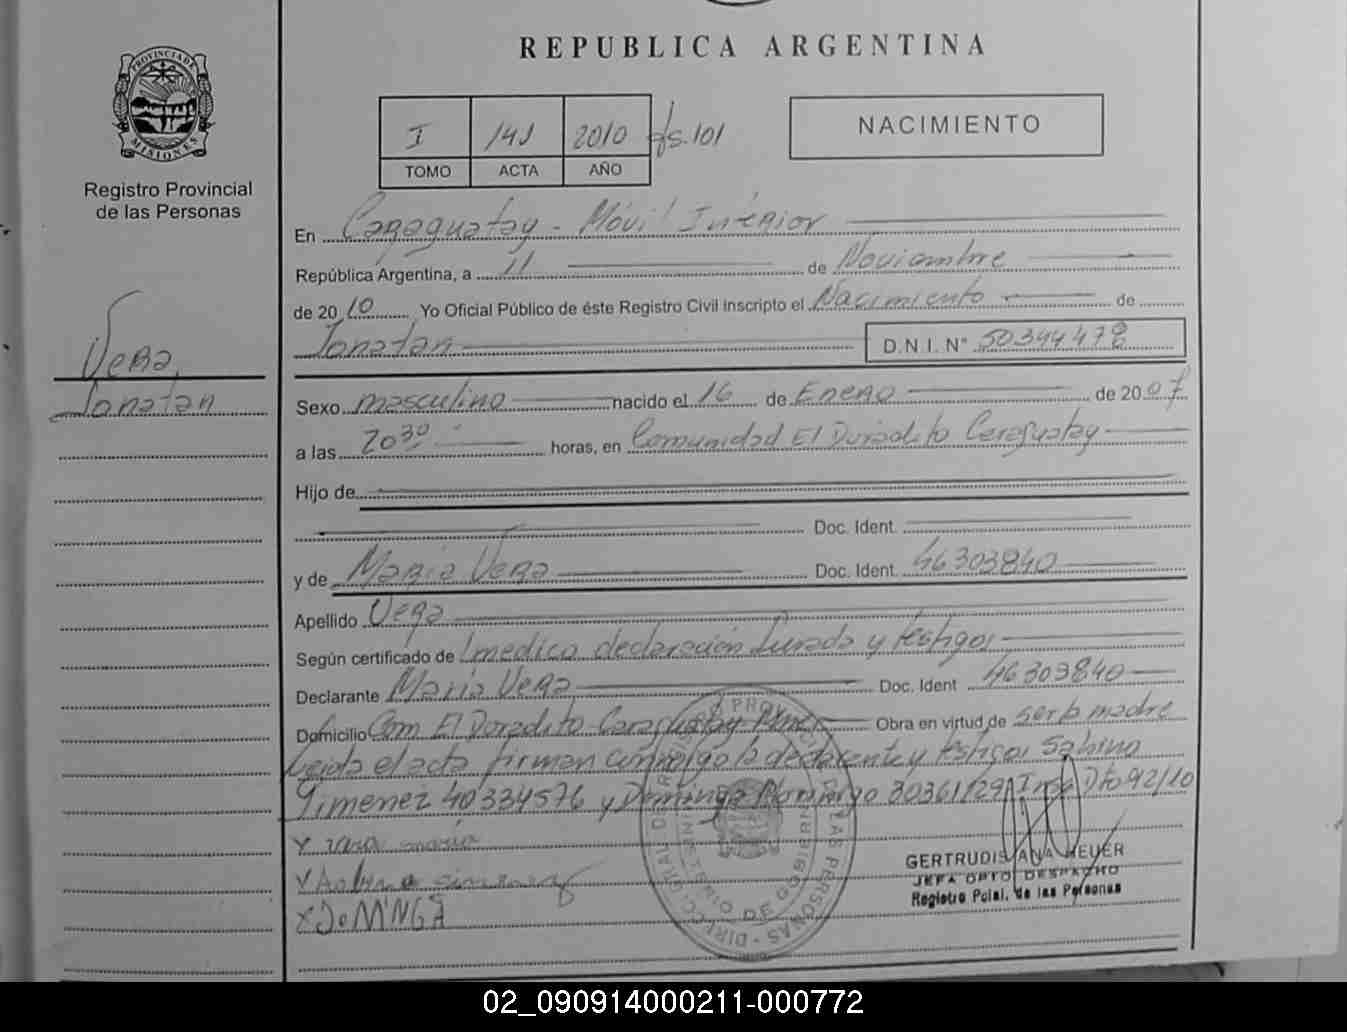 REPUBLICA ARGENTINA
PROVINCIA DE MISIONES
Registro Provincial
de las Personas
I 141 2010 fs.101
TOMO ACTA AÑO
NACIMIENTO
En Caraguatay - Móvil Interior
República Argentina, a 11 de Noviembre
de 2010 Yo Oficial Público de éste Registro Civil Inscripto el Nacimiento de
Jonatan D.N.I. N° 50344478
Vera
Jonatan
Sexo masculino nacido el 16 de Enero de 2007
a las 20 30 horas, en Comunidad El Doradito Caraguatay
Hijo de
Doc. Ident.
y de Maria Vera Doc. Ident. 46303840
Apellido Vera
Según certificado de medico declaración Jurada y testigos
Declarante Maria Vera Doc. Ident 46303840
Domicilio Com El Doradito Caraguatay Obra en virtud de ser la madre
Leida el acta firman conmigo la declarante y testigos Sabino
Gimenez 40334576 y Dominga 30361129 Dto 92/10
GERTRUDIS ANA HEUER
JEFA DPTO DESPACHO
Registro Pcial. de las Personas
X DOMINGA
02_090914000211-000772